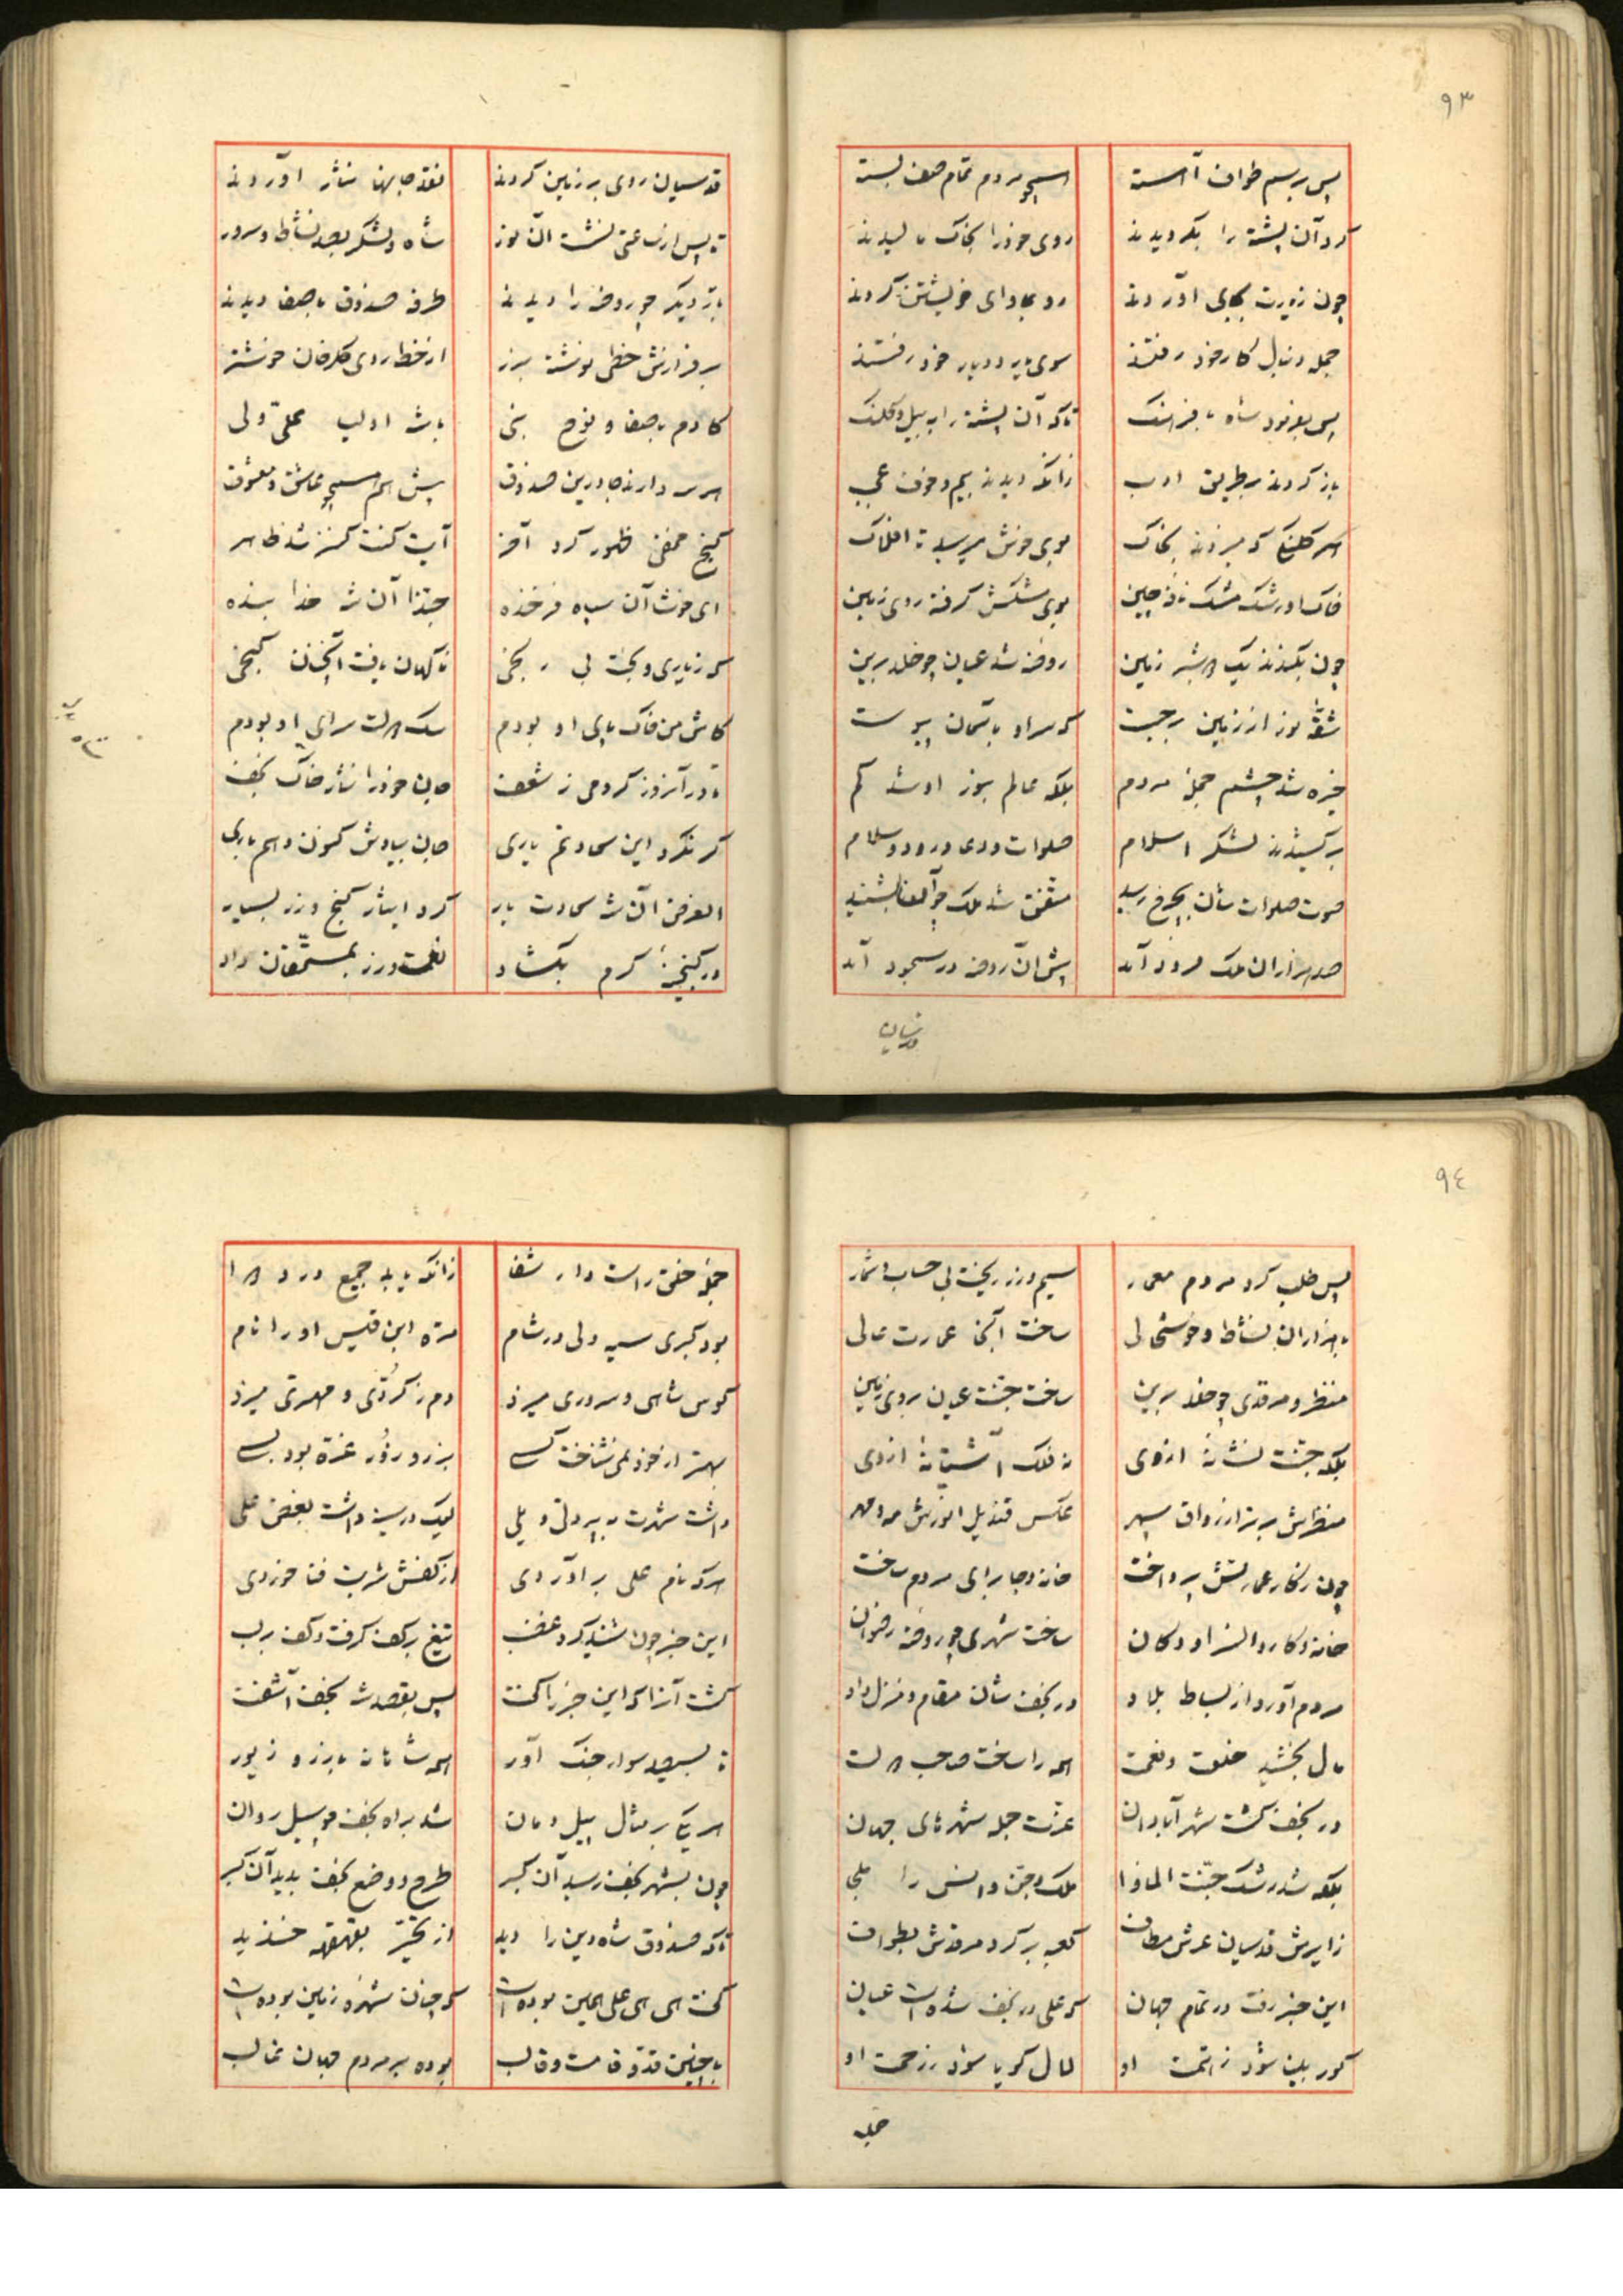 ۹۳
پس برسم طواف آهسته همچو مردم تمام صف بسته
کرد آن پشته را بکردیدند روی خود را بخاک مالیدند
چون زیارت بجای آوردند رو بماوای خویشتن کردند
جمله دنبال کار خود رفتند سوی یار و دیار خود رفتند
پس بفرمود شاه با فرهنک تا که آن پشته را به بیل و کلنک
باز کردند بر طریق ادب زانکه دیدند بیم و خوف عجب
هر کلنکی که میزدند بخاک بوی خوش میرسید تا افلاک
خاک او رشک مشک نافه چین بوی مشکش کرفته روی زمین
چون بکندند یک دو شبر زمین روضه شد عیان چو خلد برین
شقه نور از زمین برجست که سراو بآسمان پیوست
خیره شد چشم جمله مردم بلکه عالم بنور او شد کم
برکشیدند لشکر اسلام صلوات و دعا درود و سلام
صوت صلوات شان بچرخ رسید متفق شد ملک چو آنها بشنید
صد هزاران ملک فرود آمد پیش آن روضه در سجود آمد
قدسیان
قدسیان روی بر زمین کردند نقد جانها نثار آوردند
تا پس از ساعتی نشست آن نور شاه و لشکر بصد نشاط و سرور
بنزدیک چو روضه را دیدند طرفه صندوق با صفا دیدند
بر فرازش خطی نوشته بزر از خط روی کلرخان خوشتر
کادم با صفا و نوح نجی باشه اولیا علی ولی
هر سه دارند جا درین صندوق پیش هم همچو عاشق و معشوق
کنج مخفی ظهور کرد آخر آیت کنت کنز شد ظاهر
ای خوشا آن سپاه فرخنده حبذا آن شه خدا بنده
که ز یاری و بخت بی رنجی ناکهان یافت آنچنان کنجی
کاش من خاک پای او بودم سک دولت سرای او بودم
تا در آنروز کردمی ز شعف جان خود را نثار خاک نجف
کر نکرد این سعادتم یاری جان بیادش کنون دهم باری
الغرض آن شه سعادت یار کرد ایثار کنج و زر بسیار
در کنجینه کرم بکشاد نعمت و زر بمستحقان داد
۹٤
پس طلب کرد مردم معمار سیم و زر ریخت بی حساب و شمار
با هزاران نشاط و خوشحالی ساخت آنجا عمارت عالی
منظر و مرقدی چو خلد برین ساخت جنت عیان بروی زمین
بلکه جنت نشانه از وی نه فلک آشیانه از وی
منظرش برتر از رواق سپهر عکس قندیل انورش مه و مهر
چون ز کار عمارتش پرداخت خانه و جا برای مردم ساخت
خانه و کاروانسرا و دکان ساخت شهری چو روضه رضوان
مردم آورد از بساط بلاد در نجف شان مقام و منزل داد
مال بخشید خلعت و نعمت همه را ساخت صاحب دولت
در نجف کشت شهر آبادان عزت جمله شهرهای جهان
بلکه شد رشک جنت الماوا ملک و جن و انس را ملجی
زایرش قدسیان عرش مطاف کعبه بر کرد مرقدش بطواف
این خبر رفت در تمام جهان که علی در نجف شده است عیان
کور بینا شود ز همت او لال کویا شود ز رحمت او
جمله
جمله خلق راست دار شفا زانکه یابد جمیع درد دوا
بود کبری سیه دلی در شام مره ابن قیس او را نام
کوس شاهی و سروری میزد دم ز کردی و مهتری میزد
بهتر از خود نمی شناخت کسی بزر و زور غره بود بسی
داشت شهرت به پر دلی و یلی لیک در سینه داشت بغض علی
هر که نام علی بر آوردی از کفش شربت فنا خوردی
این خبر چون شنید کرد غضب تیغ بر کف کرفت و کف بر لب
کشت آنرا که این خبر را کفت پس بقصد شه نجف آشفت
تا بسیصد سوار جنک آور همه شان با زر و زیور
هر یکی بر مثال پیل دمان شد براه نجف چو سیل روان
چون بشهر نجف رسید آن کبر طرح و وضع نجف بدید آن کبر
تا که صندوق شاه دین را دید از تحیر بقهقهه خندید
کفت هی هی علی همین بوده است که چنان شهره زمین بوده است
با چنین قد و قامت و قالب بوده بر مردم جهان غالب